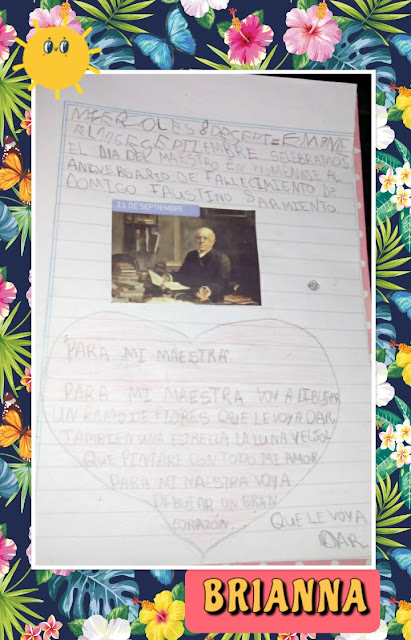 MIERCOLES 8 DE CEPTIEMBRE
EL 11 DE CEPTIEMBRE SELEBRAMOS
EL DIA DEL MAESTRO EN HOMENAJE AL
ANIVERSARIO DE FALLECIMIENTO DE
DOMIGO FAUSTINO SARMIENTO.
11 DE SEPTIEMBRE
PARA MI MAESTRA
PARA MI MAESTRA VOY A DIBUJAR
UN RAMO DE FLORES QUE LE VOY A DAR,
TAMBIEN UNA ESTRELLA LA LUNA Y EL SOL
QUE PINTARE CON TODO MI AMOR
PARA MI MAESTRA VOY A
DIBUJAR UN GRAN
CORAZÓN.. QUE LE VOY A
DAR.
BRIANNA